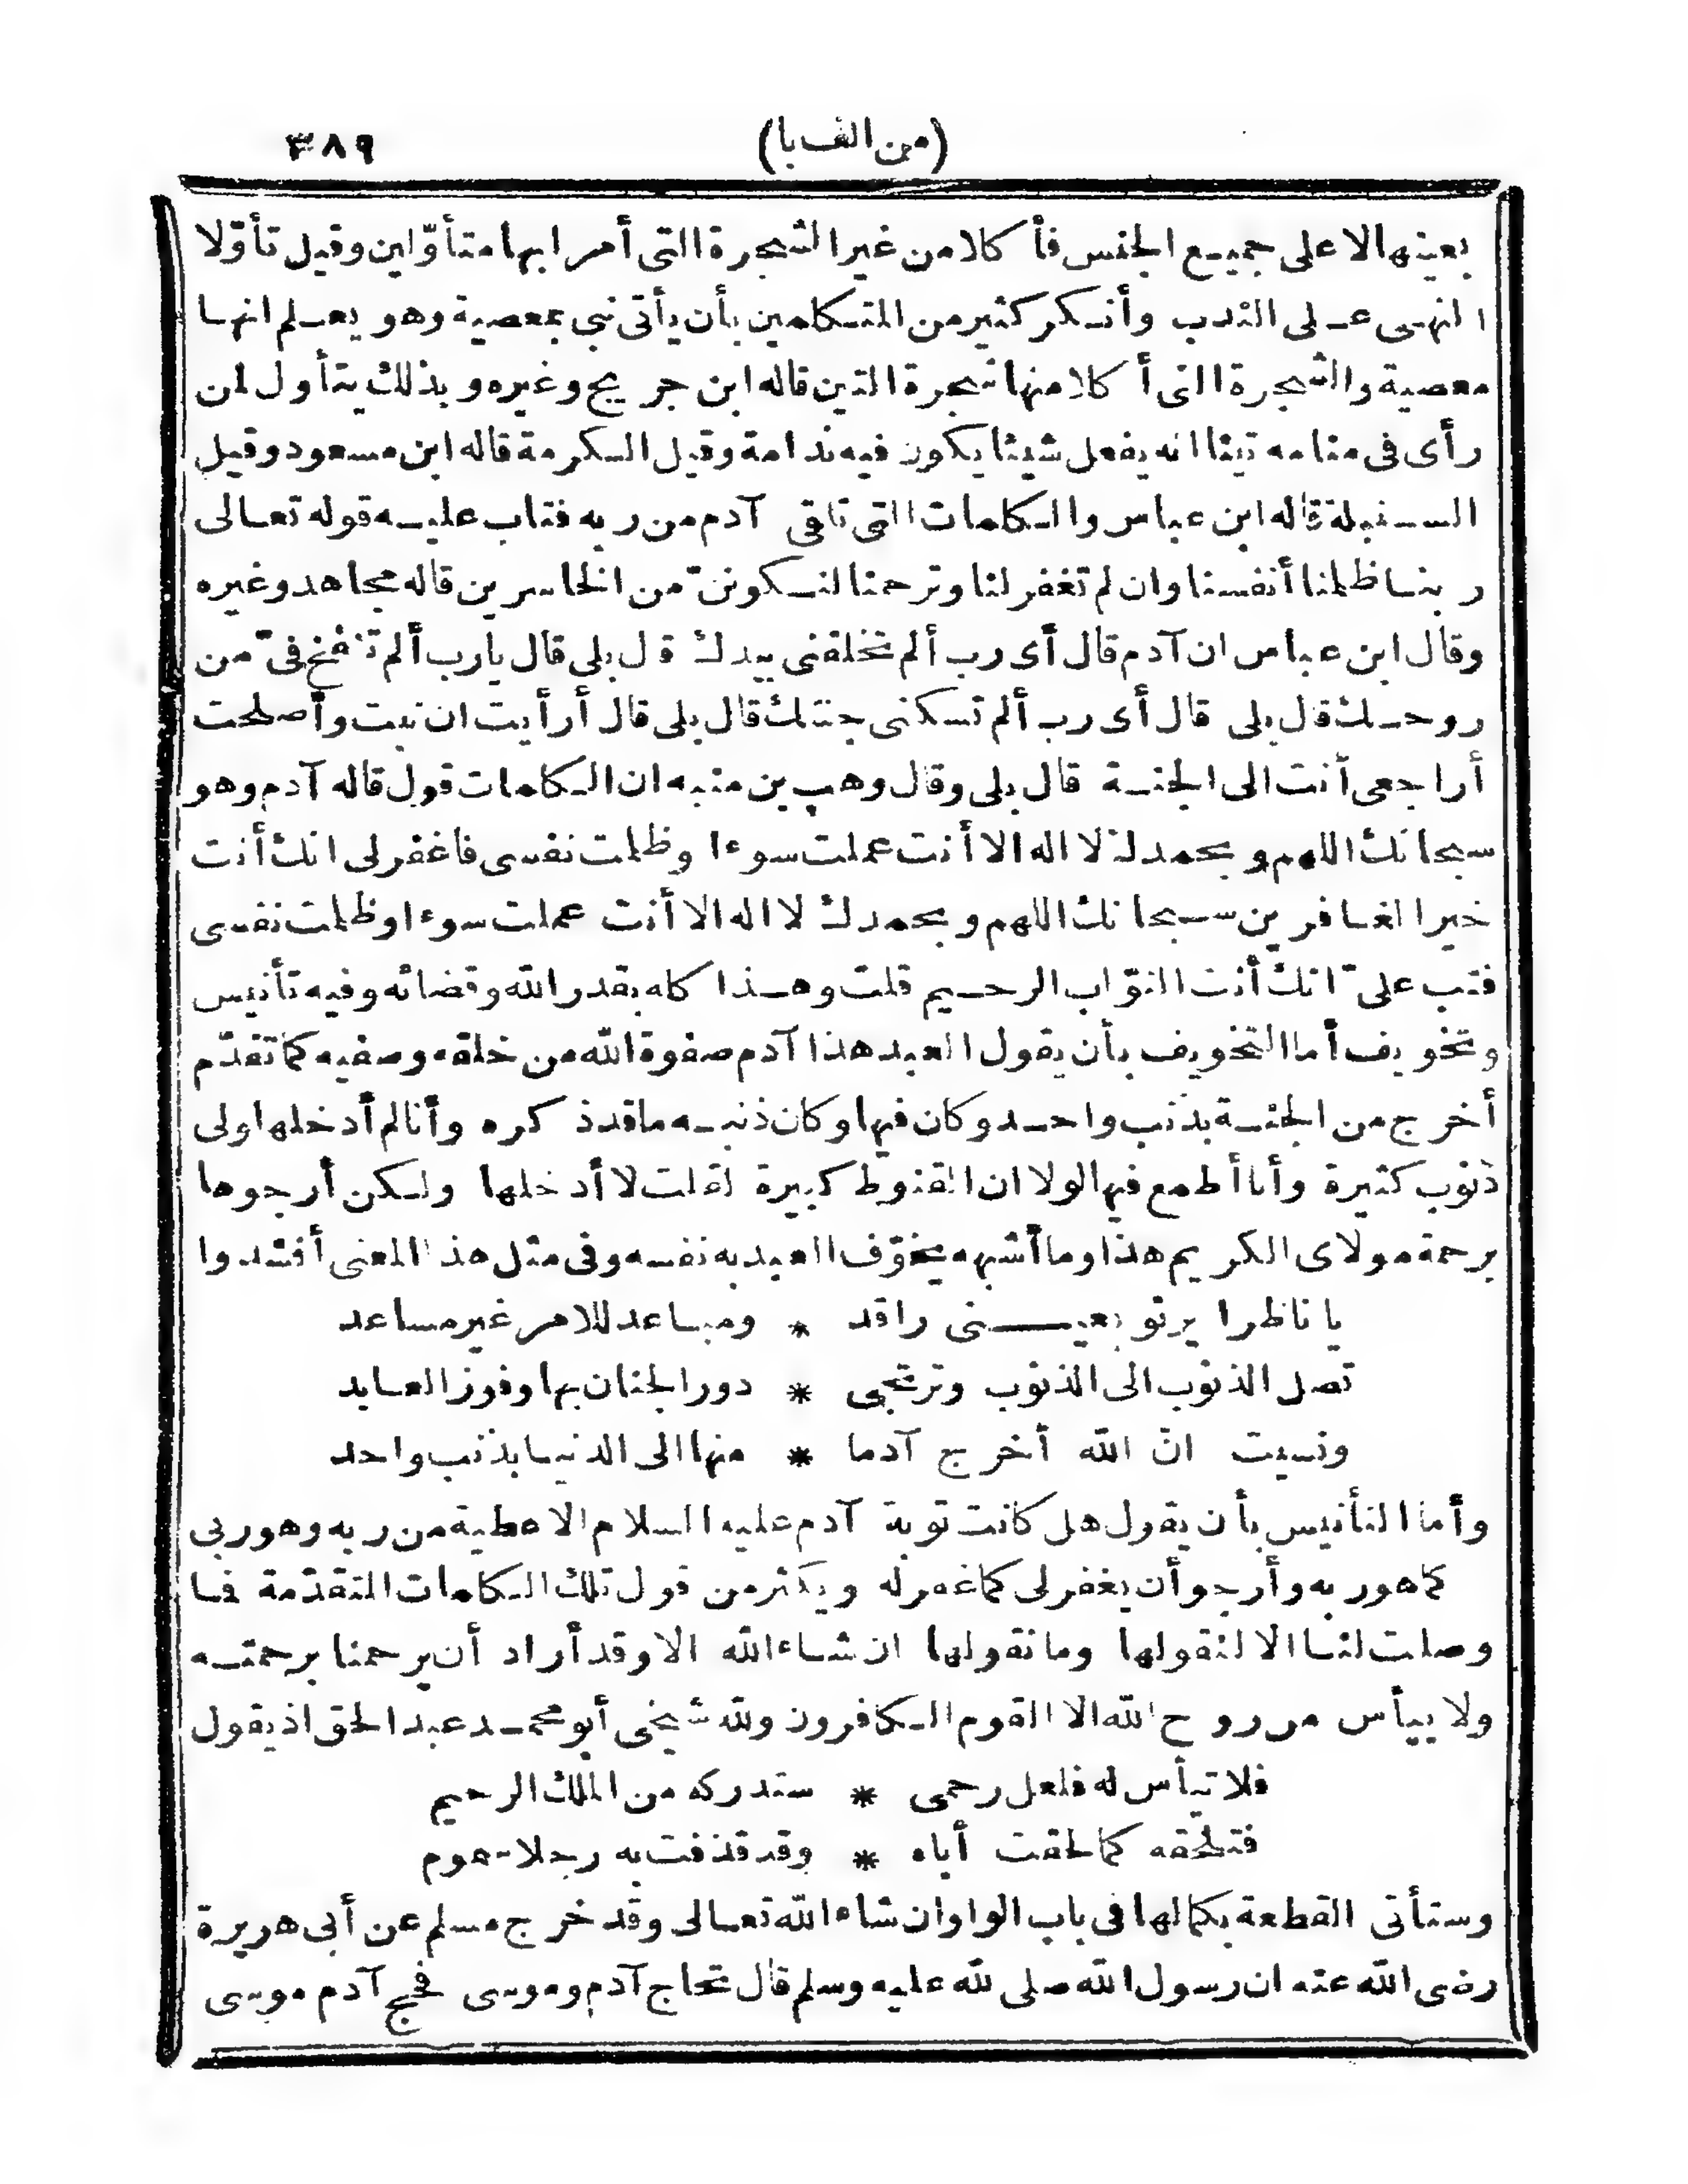 (من الف با)
٣٨٩
بعينها لا على جميع الجنس فأكلا من غير الشجرة التى أمرا بها متأوّلين وقيل تأوّلا
النهى على الندب وأنكر كثير من المتكلمين بأن يأتى نبى بمعصية وهو يعلم انها
معصية والشجرة التى أكلا منها شجرة التين قاله ابن جريج وغيره وبذلك يتأول لمن
رأى فى منامه تينا انه يفعل شيئا يكون فيه ندامة وقيل الكرمة قاله ابن مسعود وقيل
السنبلة قاله ابن عباس والكلمات التى تلقى آدم من ربه فتاب عليه قوله تعالى
ربنا ظلمنا أنفسنا وان لم تغفر لنا وترحمنا لنكوننّ من الخاسرين قاله مجاهد وغيره
وقال ابن عباس ان آدم قال أى رب ألم تخلقنى بيدك قال بلى قال يارب ألم تنفخ فىّ من
روحك قال بلى قال أى رب ألم تسكنى جنتك قال بلى قال أرأيت ان تبت وأصلحت
أراجعى أنت الى الجنة قال بلى وقال وهب بن منبه ان الكلمات قول قاله آدم وهو
سبحانك اللهم وبحمدك لا اله الا أنت عملت سوءا وظلمت نفسى فاغفر لى انك أنت
خير الغافرين سبحانك اللهم وبحمدك لا اله الا أنت عملت سوءا وظلمت نفسى
فتب علىّ انك أنت التوّاب الرحيم قلت وهذا كله بقدر الله وقضائه وفيه تأنيس
وتخويف أما التخويف بأن يقول العبد هذا آدم صفوة الله من خلقه وصفيه كما تقدّم
أخرج من الجنة بذنب واحد وكان فيها وكان ذنبه ما قد ذكره وأنا لم أدخلها ولى
ذنوب كثيرة وأنا أطمع فيها لولا ان القنوط كبيرة لقلت لا أدخلها ولكن أرجوها
برحمة مولاى الكريم هذا وما أشبهه يخوّف العبد به نفسه وفى مثل هذا المعنى أنشدوا
يا ناظرا يرنو بعينى راقد * ومباعد للامر غير مساعد
تصل الذنوب الى الذنوب وترتجى * دور الجنان بها وفوز العابد
ونسيت انّ الله أخرج آدما * منها الى الدنيا بذنب واحد
وأما التأنيس بأن يقول هل كانت توبة آدم عليه السلام الا عطية من ربه وهو ربى
كما هو ربه وأرجو أن يغفر لى كما غفر له ويكثر من قول تلك الكلمات المتقدّمة فما
وصلت لنا الا لنقولها وما نقولها ان شاء الله الا وقد أراد أن يرحمنا برحمته
ولا ييأس من روح الله الا القوم الكافرون ولله شيخى أبو محمد عبد الحق اذ يقول
فلا تيأس له فلعل رحمى * ستدركه من الملك الرحيم
فتلحقه كما لحقت أباه * وقد قذفت به رجلا هموم
وستأتى القطعة بكمالها فى باب الواو ان شاء الله تعالى وقد خرج مسلم عن أبى هريرة
رضى الله عنه ان رسول الله صلى لله عليه وسلم قال تحاج آدم وموسى فحج آدم موسى